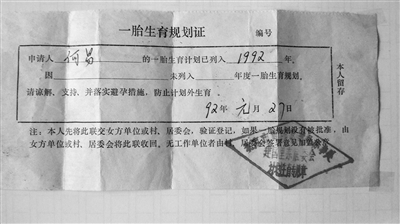 一胎生育规划证 编号
申请人 何易 的一胎生育计划已列入 1992 年。
因 未列入 年度一胎生育规划。
请谅解、支持，并落实避孕措施，防止计划外生育。
92年 元月27日
本人留存
注：本人先将此联交女方单位或村、居委会，验证登记，如果一胎规划没有被批准，由
女方单位或村、居委会将此联收回。无工作单位者由村、居委会签署意见加盖公章